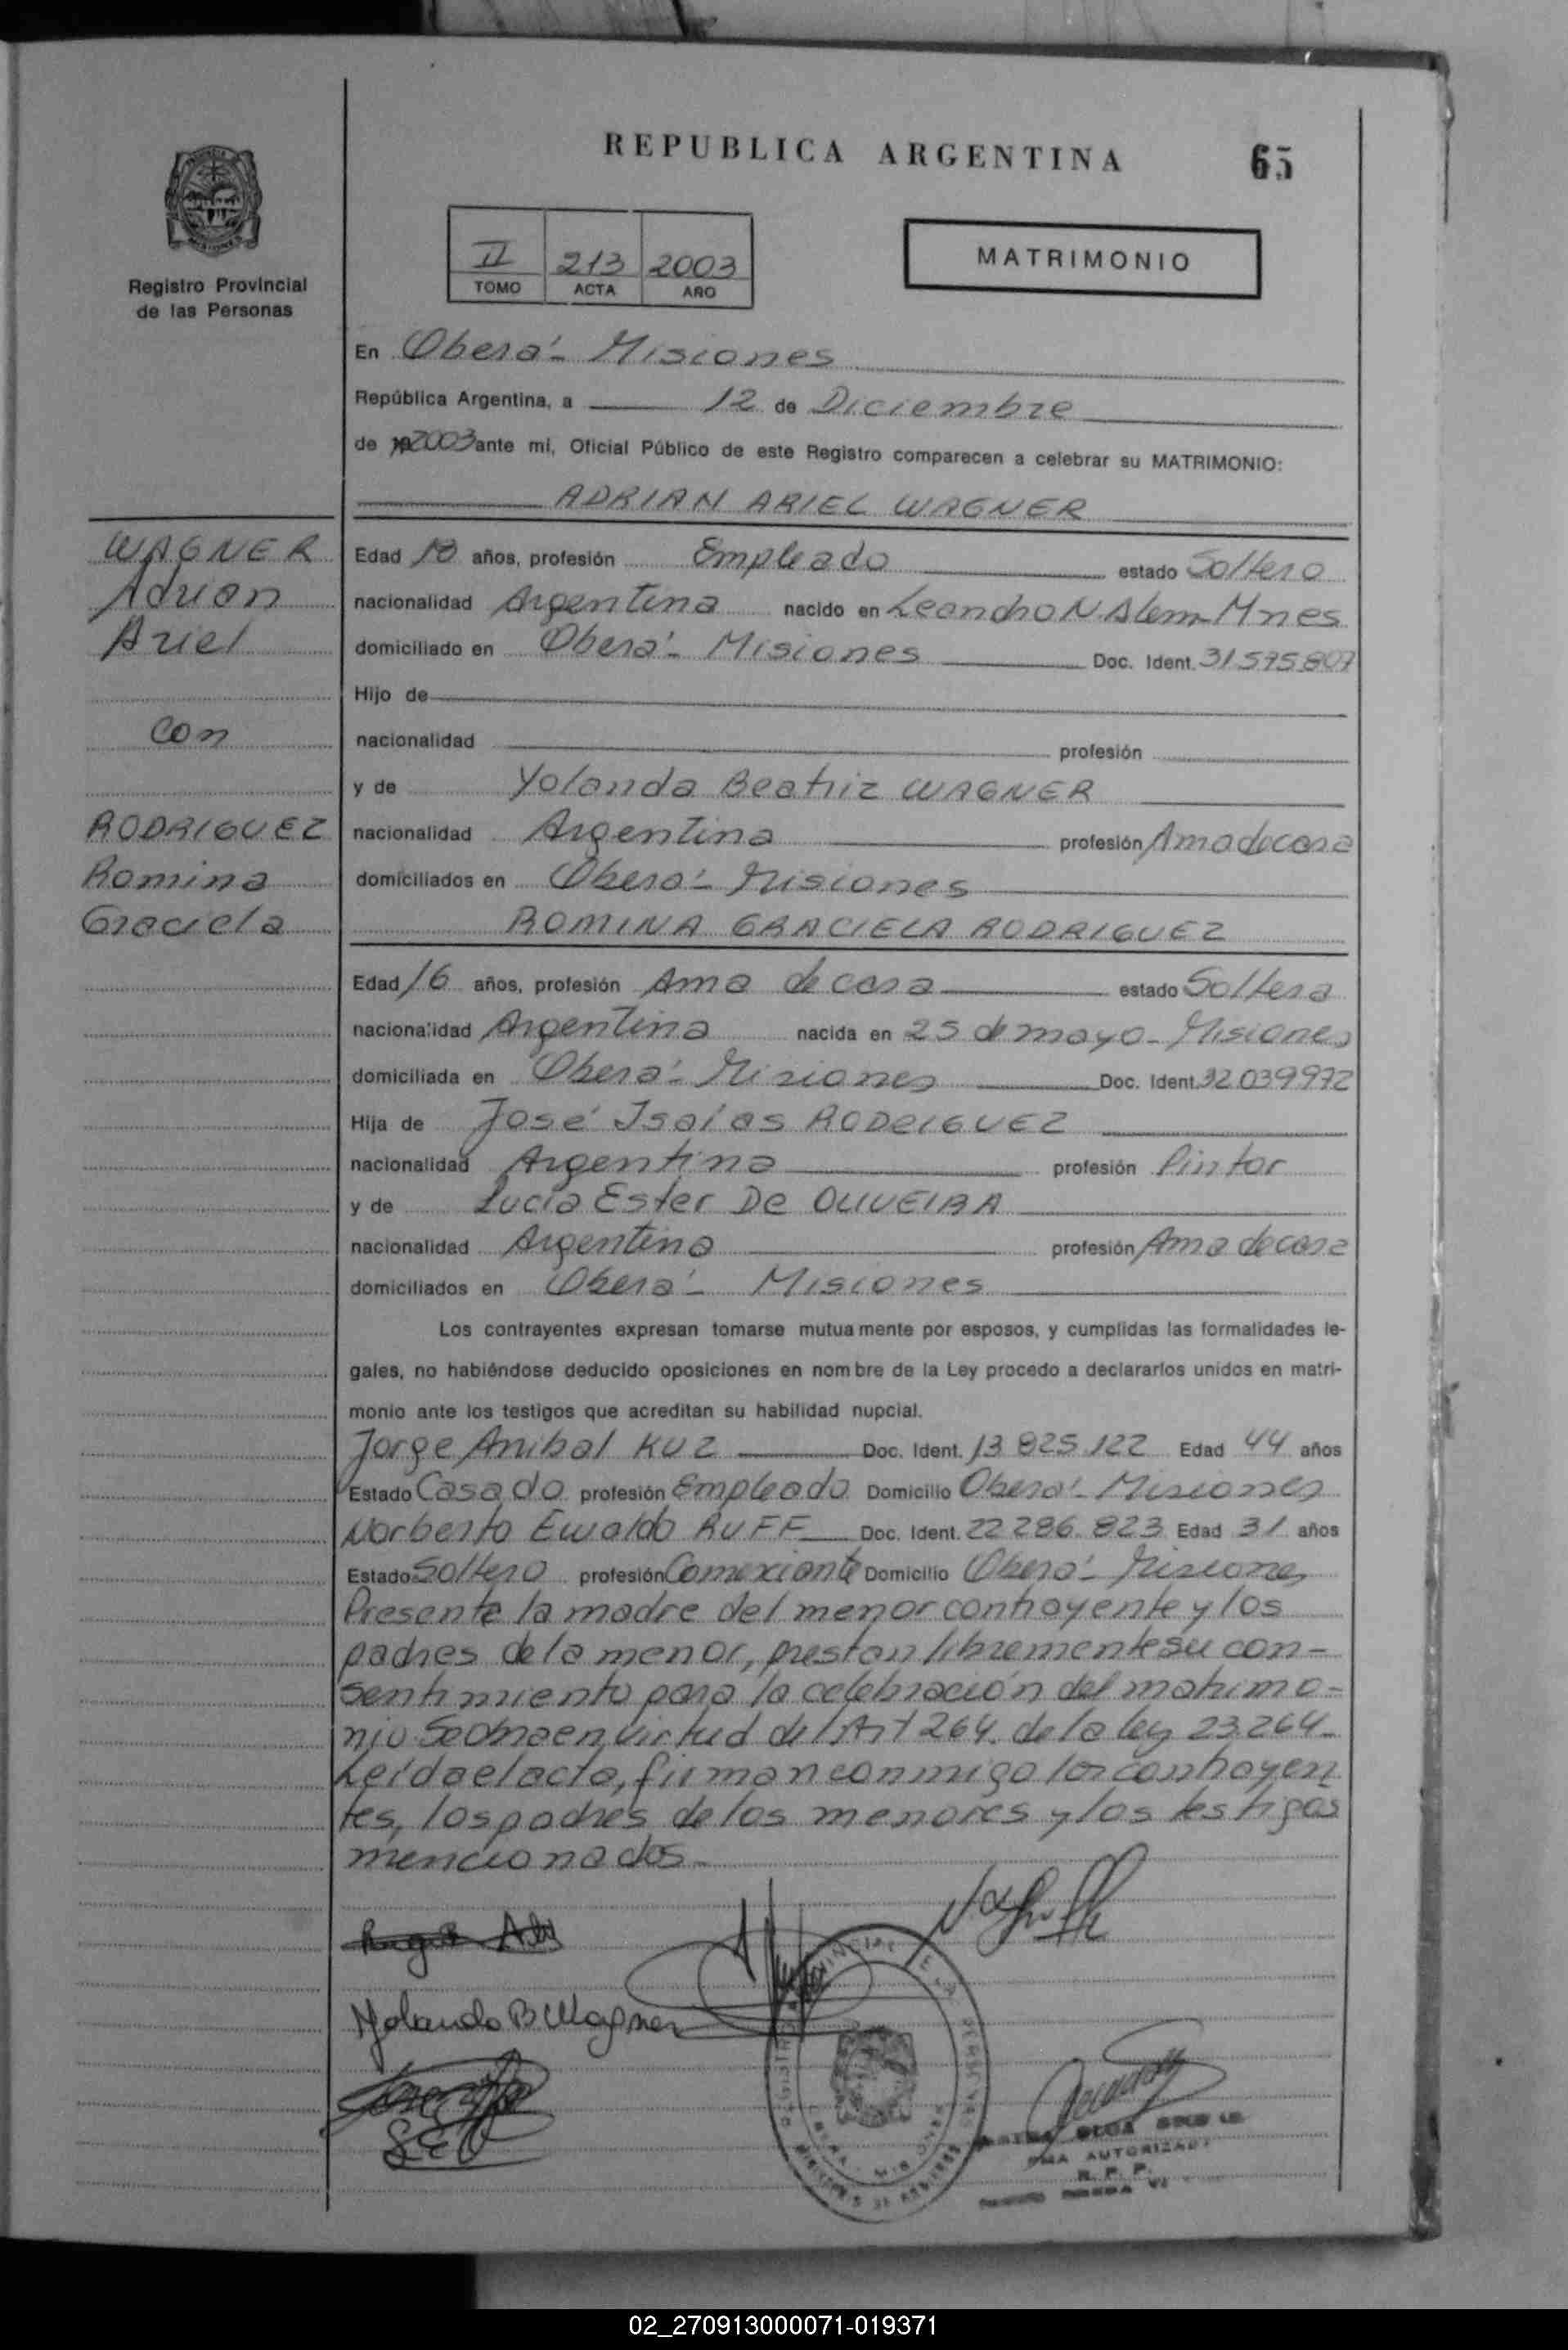 REPUBLICA ARGENTINA
65
Registro Provincial
de las Personas
II 213 2003
TOMO ACTA AÑO
MATRIMONIO
En Oberá - Misiones
República Argentina, a 12 de Diciembre
de 2003 ante mí, Oficial Público de este Registro comparecen a celebrar su MATRIMONIO:
ADRIAN ARIEL WAGNER
WAGNER
Adrian
Ariel
con
RODRIGUEZ
Romina
Graciela
Edad 18 años, profesión Empleado estado Soltero
nacionalidad Argentina nacido en Leandro N. Alem - Mnes
domiciliado en Oberá - Misiones Doc. Ident. 31.575.807
Hijo de
nacionalidad profesión
y de Yolanda Beatriz WAGNER
nacionalidad Argentina profesión Ama de casa
domiciliados en Oberá - Misiones
ROMINA GRACIELA RODRIGUEZ
Edad 16 años, profesión Ama de casa estado Soltera
nacionalidad Argentina nacida en 25 de mayo - Misiones
domiciliada en Oberá - Misiones Doc. Ident. 32.039.972
Hija de José Isaías RODRIGUEZ
nacionalidad Argentina profesión Pintor
y de Lucía Ester DE OLIVEIRA
nacionalidad Argentina profesión Ama de casa
domiciliados en Oberá - Misiones
Los contrayentes expresan tomarse mutuamente por esposos, y cumplidas las formalidades le-
gales, no habiéndose deducido oposiciones en nombre de la Ley procedo a declararlos unidos en matri-
monio ante los testigos que acreditan su habilidad nupcial.
Jorge Anibal KUZ Doc. Ident. 13.825.122 Edad 44 años
Estado Casado profesión Empleado Domicilio Oberá - Misiones
Norberto Ewaldo RUFF Doc. Ident. 22.286.823 Edad 31 años
Estado Soltero profesión Comerciante Domicilio Oberá - Misiones
Presente la madre del menor contrayente y los
padres de la menor, prestan libremente su con-
sentimiento para la celebración del matrimo-
nio. en virtud del Art 264. de la ley 23.264 -
Leída el acta, firman conmigo los contrayen
tes, los padres de los menores y los testigos
mencionados -
Yolanda B Wagner
OLGA
AUTORIZADA
R. P. P.
02_270913000071-019371